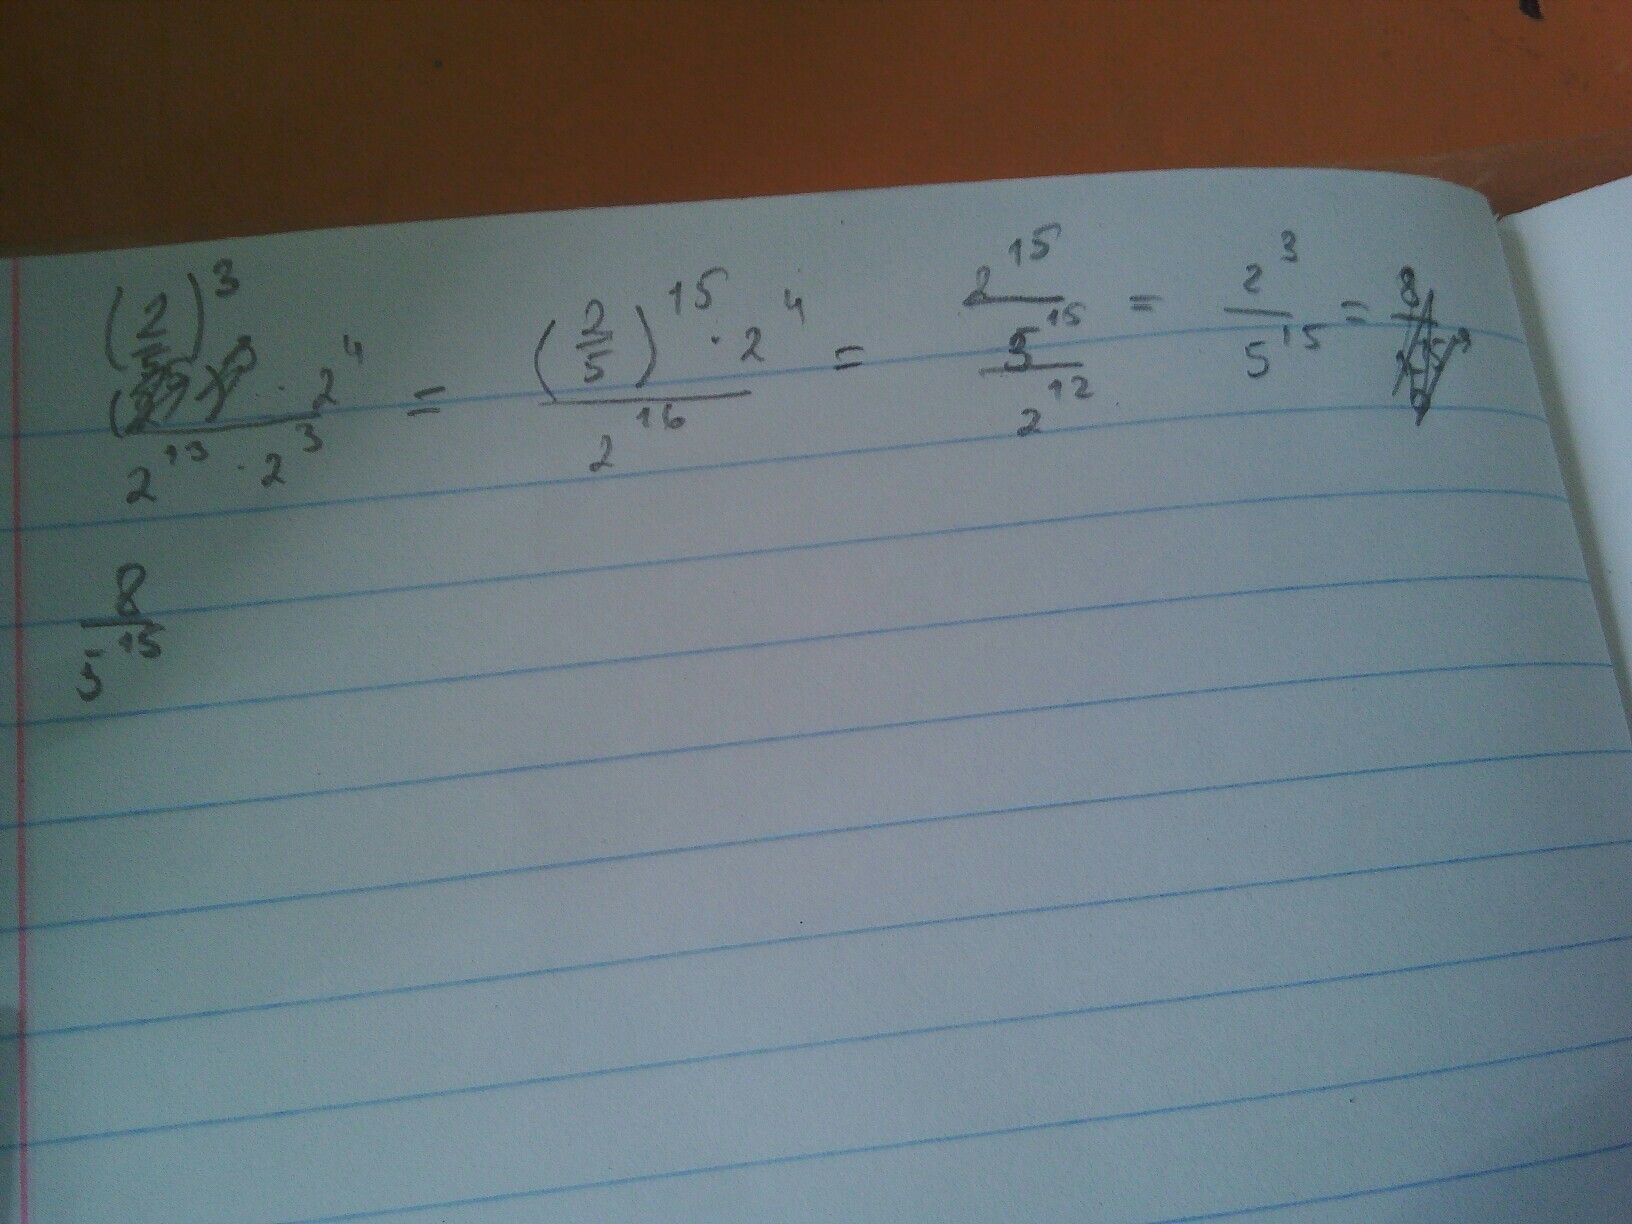 (2/5)^3 · 2^4 / 2^13 · 2^3 = (2/5)^15 · 2^4 / 2^16 = 2^15 / 5^15 / 2^12 = 2^3 / 5^15 = 8
8 / 5^15